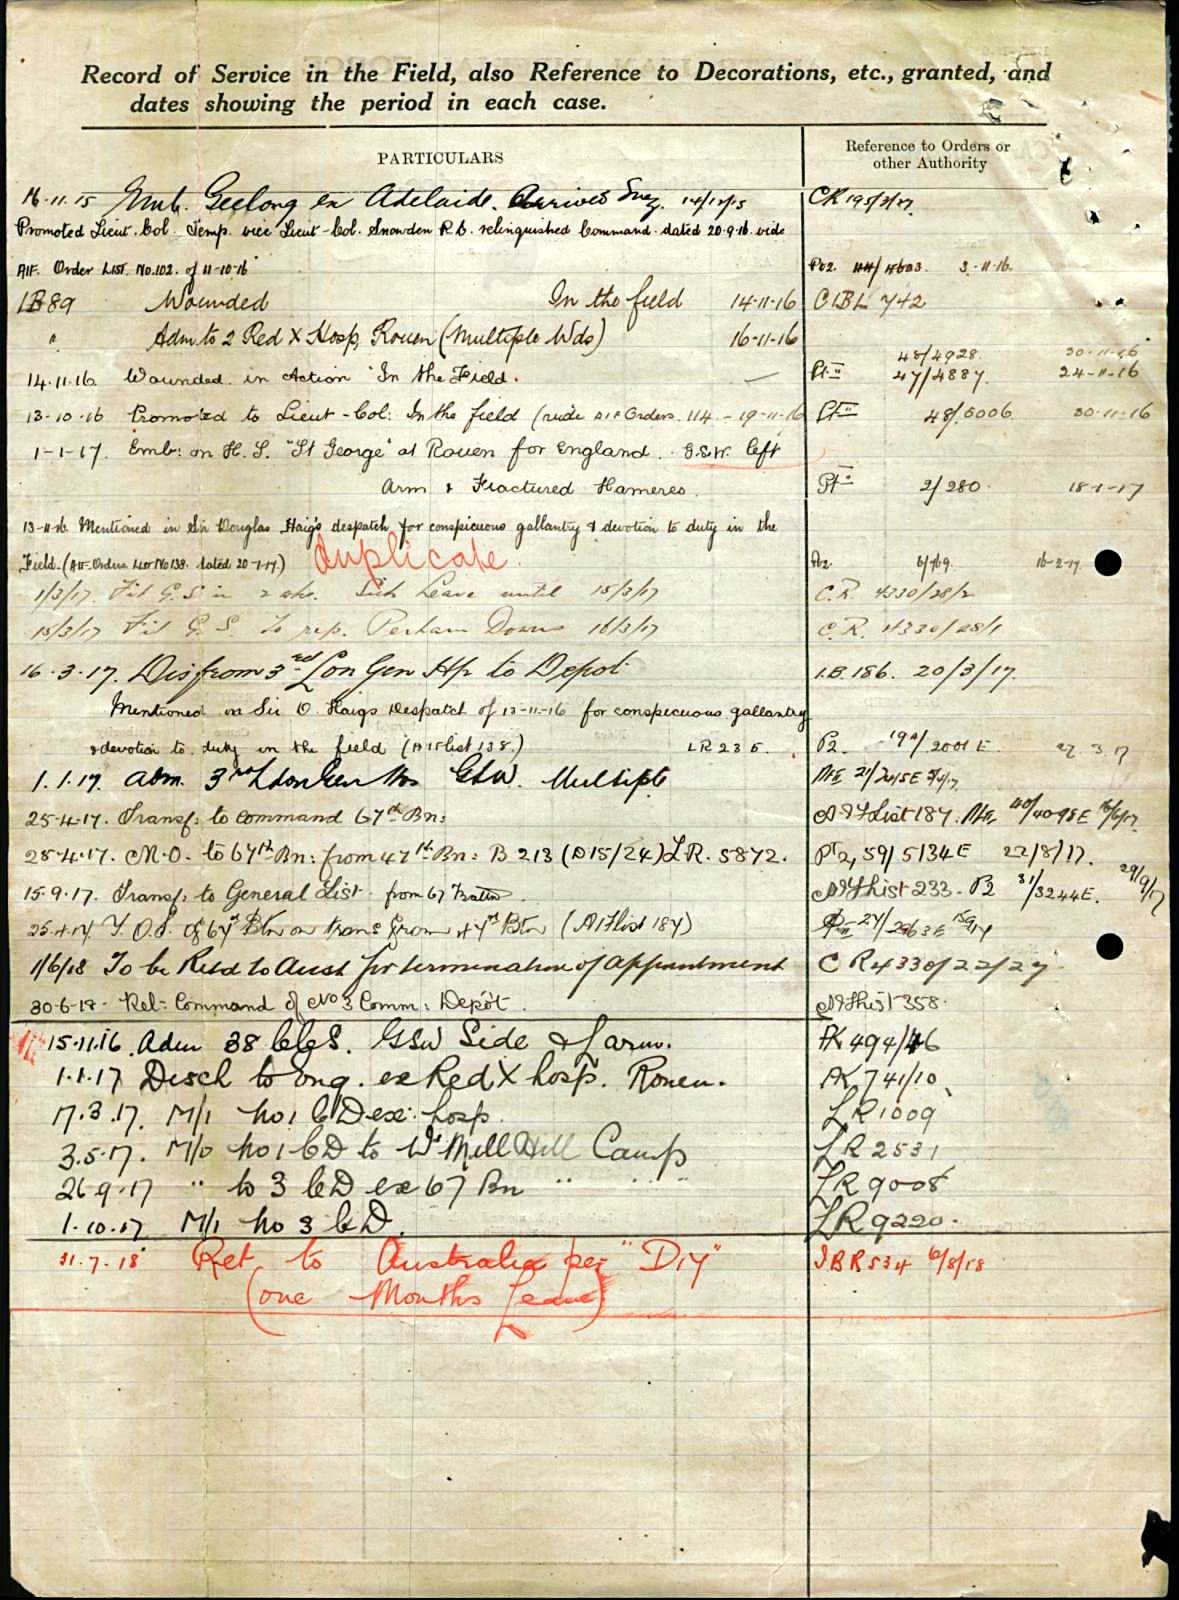 Record of Service in the Field, also Reference to Decorations, etc., granted, and
dates showing the period in each case.
PARTICULARS
Reference to Orders or
other Authority
16.11.15 Emb. Geelong ex Adelaide. Arrived Suez. 14/12/15
Promoted Lieut. Col. Temp. vice Lieut-Col. Snowden R.E. relinquished Command. dated 20.9.16 vide
AIF. Order List. No. 102. of 11-10-16 44/4603. 3-11-16.
1B 89 Wounded In the field 14-11-16 CIBL 742
" Adm to 2 Red X Hosp, Rouen (Multiple Wds) 16-11-16
48/4928. 30-11-16
14.11.16. Wounded in Action In the Field. — Pt II 47/4887. 24-11-16
13-10-16 Promoted to Lieut-Col: In the field (vide AIF Orders. 114 - 19-11-16 Pt II 48/5006 30-11-16
1-1-17. Emb: on H.S. "St George" at Rouen for England. G.S.W. left
Arm & Fractured Humeres. Pt II 2/280. 18-1-17
13-11-16. Mentioned in Sir Douglas Haig's despatch for conspicuous gallantry & devotion to duty in the
Field. (AIF. Orders List No 138. dated 20-1-17.) duplicate. 6/769. 16-2-17
1/3/17. Fit G.S. in 2 wks. Sick Leave until 15/3/17 C.R. 4330/28/2
15/3/17 Fit G.S. To rep. Perham Downs 16/3/17 C.R. 4330/28/1
16.3.17. Dis from 3rd Lon Gen Hp to Depot 1.B. 186. 20/3/17.
Mentioned in Sir D. Haigs Despatch of 13-11-16 for conspicuous gallantry
& devotion to duty in the field (A 15 list 138.) LR 235. P2. 19A/2001 E. 27.3.17
1.1.17. Adm. 3rd London Gen Hos GSW. Multiple
25.4.17. Transf: to command 67th Bn: AIF List 187. 40/4098E 16/6/17.
28.4.17. M.O. to 67th Bn: from 47th Bn: B 213 (D15/24) LR. 5872. Pt 2, 59/5134E 22/8/17.
15.9.17. Transf: to General List from 67 Battn AIF List 233. P2 81/3244E. 29/9/17
25.4.17 T.O.S. of 67th Btn on trans from 47th Btn (AIF list 187)
1/6/18 To be Retd to Aust for termination of appointment CR 4330/22/27
30-6-18. Rel: Command of No 3 Comm: Depot. AIF List 358.
15.11.16. Adm 38 CCS. GSW Side & L arm. AK 494/46
1.1.17 Disch to Eng. ex Red X hosp. Rouen. AK 741/10
17.3.17. M/I No 1 CD ex: hosp. LR 1009
3.5.17. M/O No 1 CD to W Mill Hill Camp LR 2531
26.9.17 " to 3 CD ex 67 Bn " " " LR 9008
1.10.17 M/I No 3 CD. LR 9220.
31.7.18 Ret to Australia per "D 17" IBR 534 6/8/18
(one Months Leave)